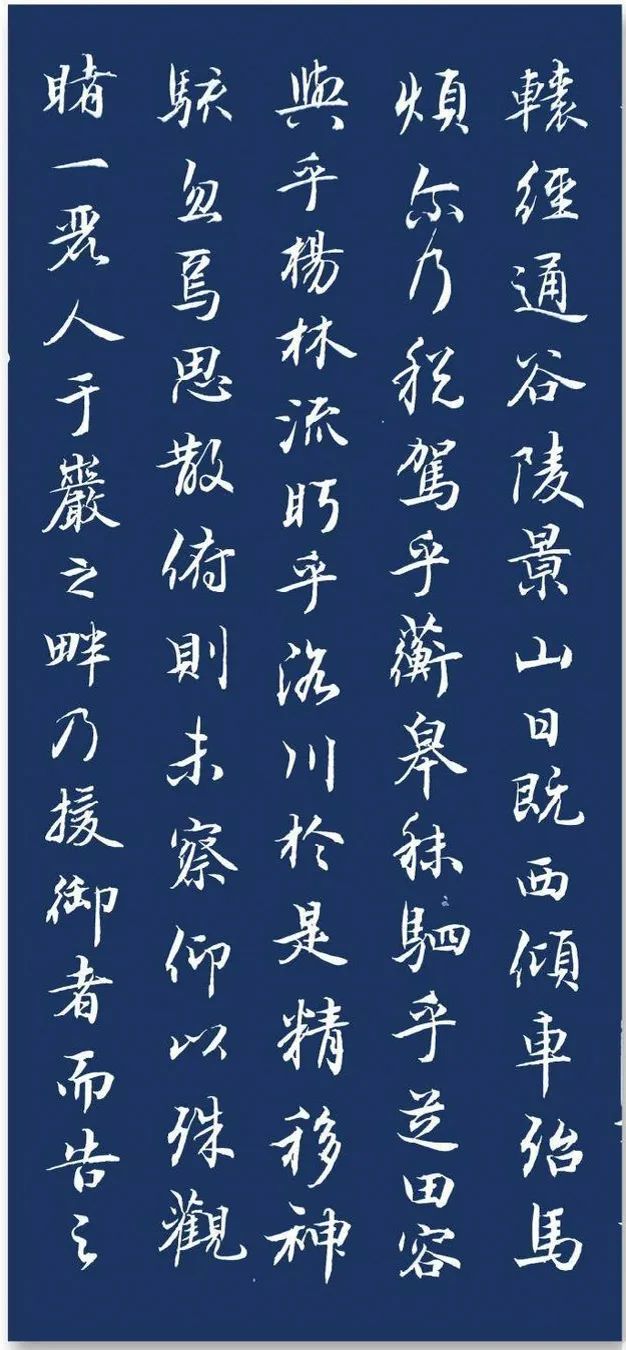 轅經通谷陵景山日既西傾車殆馬
煩尒乃稅駕乎蘅皋秣駟乎芝田容
與乎楊林流眄乎洛川於是精移神
駭忽焉思散俯則未察仰以殊觀
睹一麗人于巖之畔乃援御者而告之